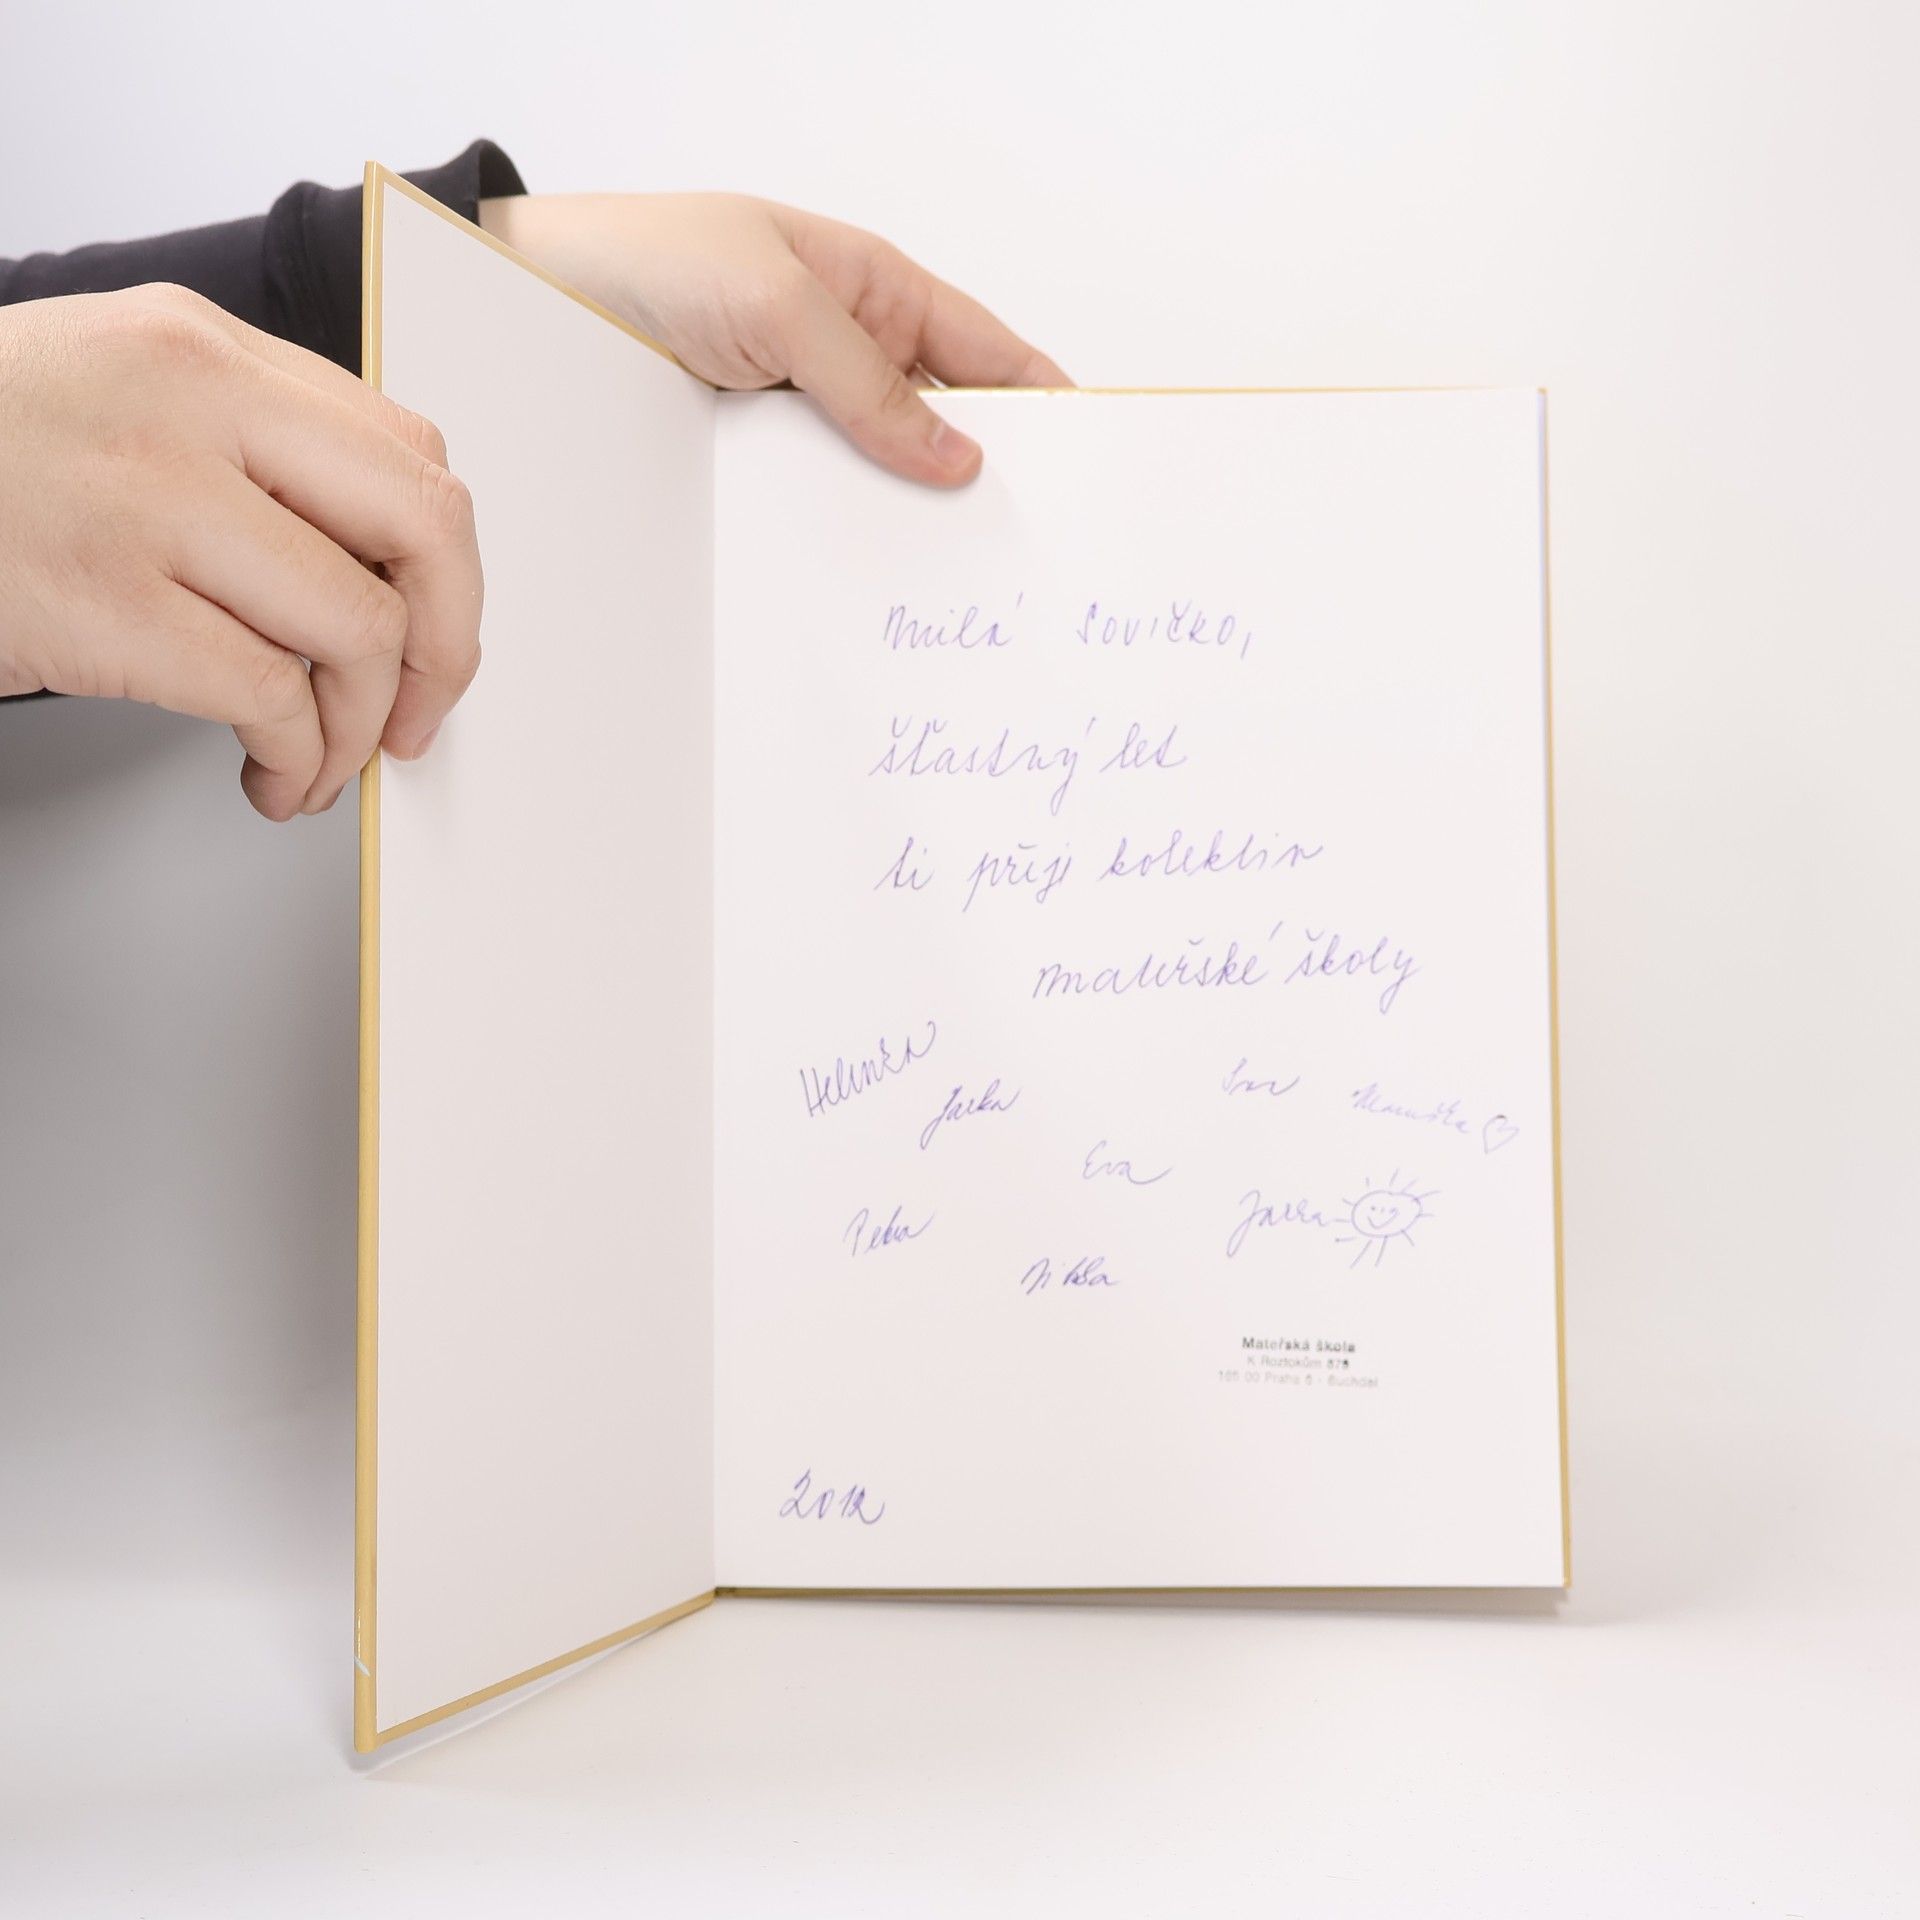 Milá Sovičko,
šťastný let
ti přeje kolektiv
mateřské školy
Helenka
Jarka
Maruška
Eva
Petra
Jarka
Mateřská škola
K Roztokům 879
165 00 Praha 6 - Suchdol
2012